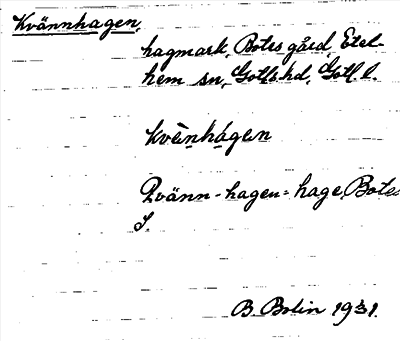 Kvännhagen,
hagmark, Botes gård, Etel-
hem sn, Gotl. s. hd, Gotl. l.
kvènhágen
Qvänn-hagen = hage, Botes
S.
B. Bolin 1931.